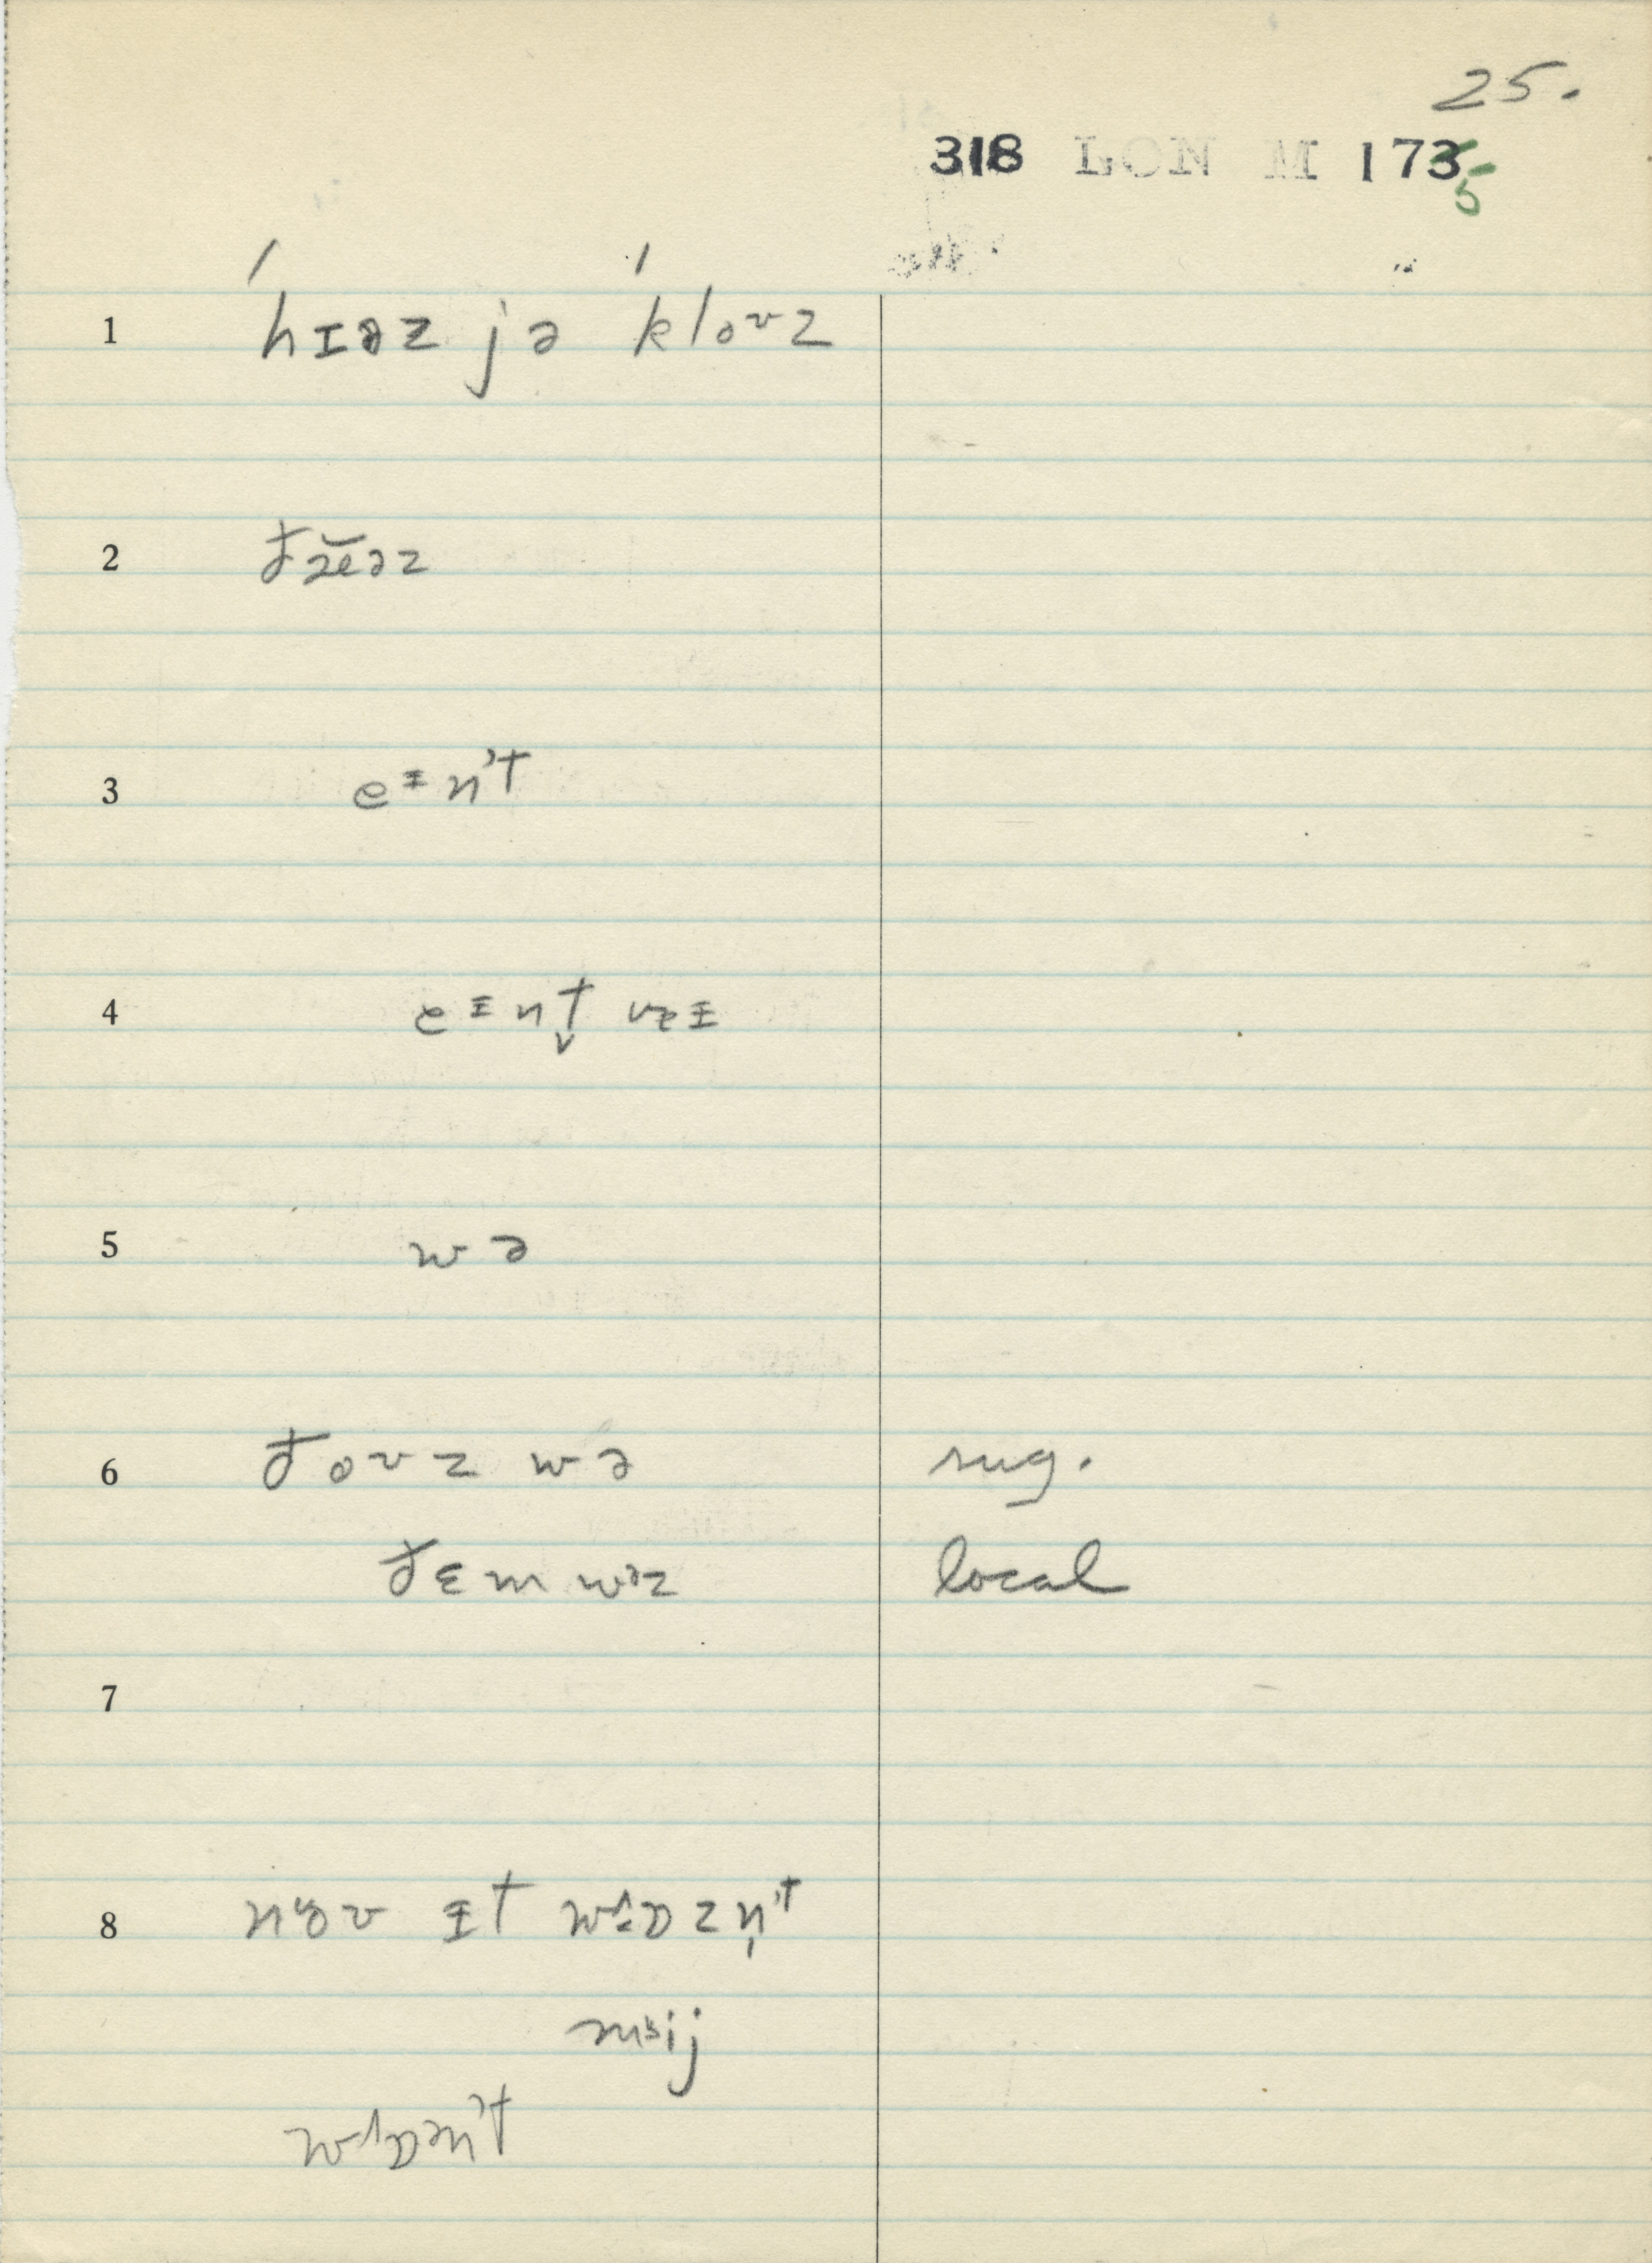 25.
318 LON M 1735
1 ´hɪəz jə ´kloʊz
2 ðæ̆əz
3 eɪnʼt
4 eɪnt̬ ɐɪ
5 wə
6 ðoʊz wə sug.
ðɛm wəz local
7
8 nɤʊ ɪt wʌɒzn̩ʼt
mɪij
wʌɒənʼt